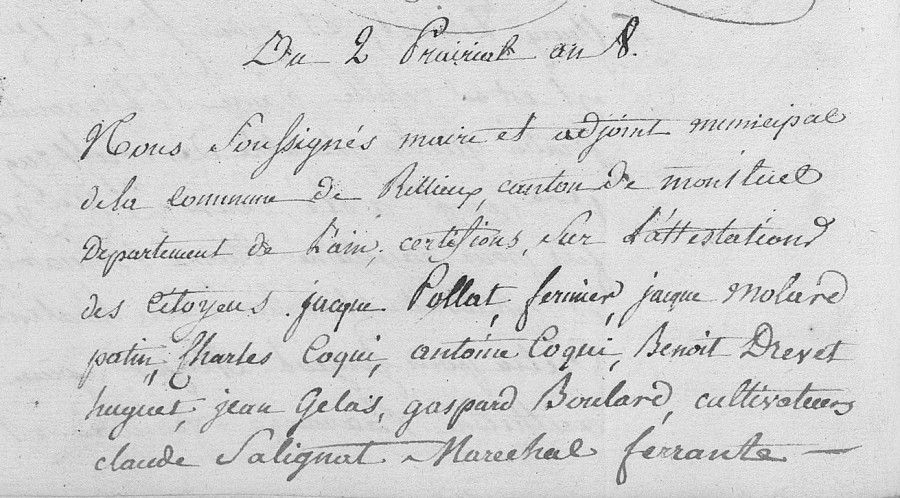 Du 2 Prairial an 8.
Nous Soussignés maire et adjoint municipal
de la commune de Rillieux, canton de montluel
Departement de L'ain, certifions, sur L'attestation
des citoyens jacque Pollat, fermier, jacque molard
patin, Charles Coqui, antoine Coqui, Benoit Drevet
huguet, jean Gelas, gaspard Boulard, cultivateurs
claude Salignat Marechal ferrante —